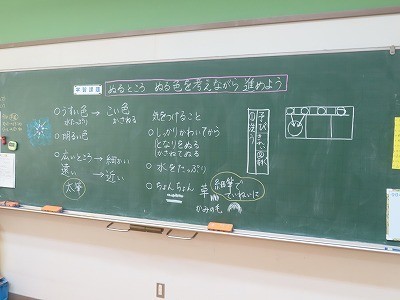 学習課題
ぬるところ ぬる色を考えながら 進めよう
○うすい色 → こい色
水たっぷり かさねる
○明るい色
○広いところ → 細かい
遠い → 近い
太筆
気をつけること
○しっかりかわいてから
となりをぬる
かさねてぬる
○水をたっぷり
○ちょんちょん 草
細筆で
ていねいに
かみの毛